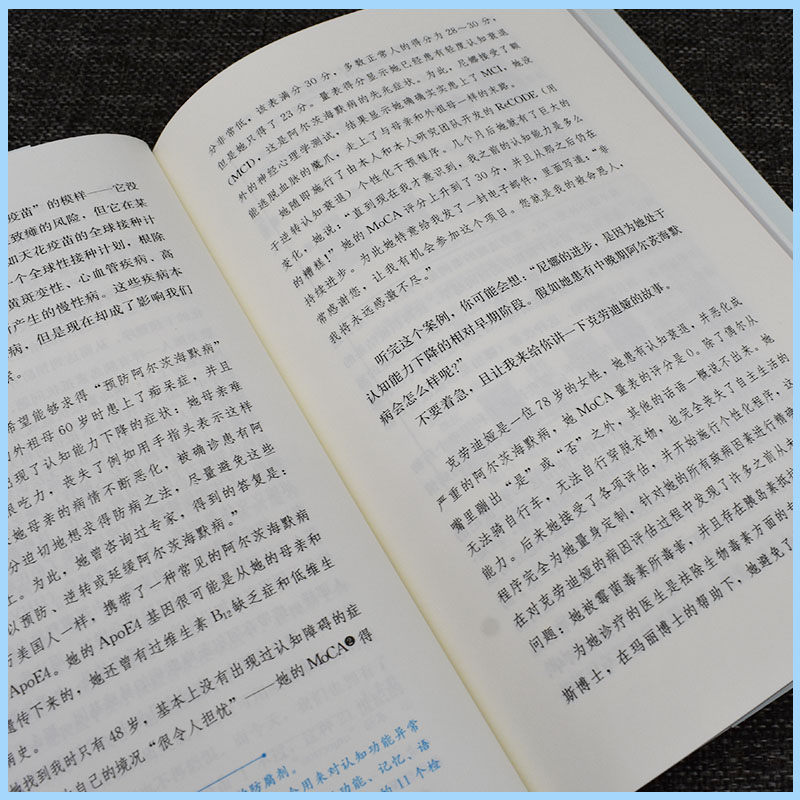 疫苗”的模样——它没
致瘫的风险，但它在某
如天花疫苗的全球接种计
个全球性接种计划，根除
黄斑变性、心血管疾病、高
所产生的慢性病。这些疾病本
病，但是现在却成了影响我们
希望能够求得“预防阿尔茨海默病”
外祖母60岁时患上了痴呆症，并且
出现了认知能力下降的症状：她母亲难
很吃力，丧失了例如用手指头表示这样
她母亲的病情不断恶化，被确诊患有阿
分迫切地想求得防病之法，尽量避免这些
上。为此，她曾咨询过专家，得到的答复是：
以预防、逆转或延缓阿尔茨海默病。”
美国人一样，携带了一种常见的阿尔茨海默病
ApoE4。她的ApoE4基因很可能是从她的母亲和
遗传下来的，她还曾有过维生素B12缺乏症和低维生
病史。
她找到我时只有48岁，基本上没有出现过认知障碍的症
自己的境况“很令人担忧”——她的MoCA❷得
防腐剂。
用来对认知功能异常
功能、记忆、语
的11个检
分非常低，该表满分30分，多数正常人的得分为28～30分，
但是她只得了23分。量表得分显示她已经患有轻度认知衰退
(MCI)，这是阿尔茨海默病的先兆症状。为此，尼娜接受了额
外的神经心理学测试，结果显示她确确实实患上了MCI，她没
能逃脱血脉的魔爪，走上了与母亲和外祖母一样的末路。
她随即施行了由本人和本人研究团队开发的ReCODE（用
于逆转认知衰退）个性化干预程序。几个月后她就有了巨大的
变化。她说：“直到现在我才意识到，我之前的认知能力是多么
的糟糕！”她的MoCA评分上升到了30分，并且从那之后仍在
持续进步。为此她特意给我发了一封电子邮件，里面写道：“非
常感谢您，让我有机会参加这个项目。您就是我的救命恩人，
我将永远感激不尽。”
听完这个案例，你可能会想：“尼娜的进步，是因为她处于
认知能力下降的相对早期阶段。假如她患有中晚期阿尔茨海默
病会怎么样呢？”
不要着急，且让我来给你讲一下克劳迪娅的故事。
克劳迪娅是一位78岁的女性，她患有认知衰退，并恶化成
严重的阿尔茨海默病，她MoCA量表的评分是0。除了偶尔从
嘴里蹦出“是”或“否”之外，其他的话语一概说不出来。她
无法骑自行车，无法自行穿脱衣物，也完全丧失了自主生活的
能力。后来她接受了各项评估，并开始施行个性化程序，这
程序完全为她量身定制，针对她的所有致病因素进行精确
在对克劳迪娅的病因评估过程中发现了许多之前从未
问题：她被霉菌毒素所毒害，并且存在胰岛素抵抗
为她诊疗的医生是祛除生物毒素方面的专
斯博士，在玛丽博士的帮助下，她避免了